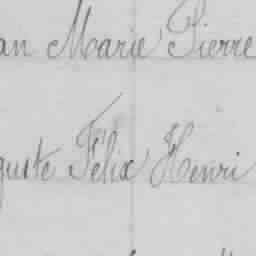 an Marie Pierre
guste Félix Henri